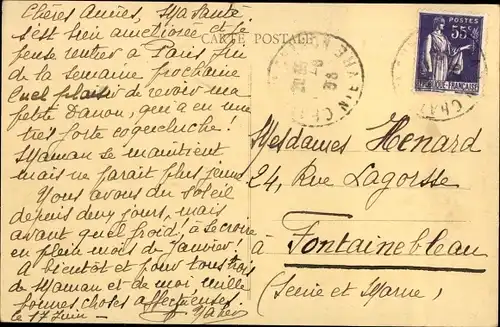 Chères Amies, Ma santé
s'est bien améliorée et je
pense rentrer à Paris fin
de la semaine prochaine
Quel plaisir de revoir ma
petite Danou, qui a eu une
très forte coqueluche!
Maman se maintient
mais ne paraît plus jeune
Nous avons du soleil
depuis deux jours, mais
avant quel froid, à se croire
en plein mois de Janvier!
A bientôt et pour tous trois
de Maman et de moi, mille
bonnes choses affectueuses.
le 17 Juin
CARTE POSTALE
POSTES
55c
FRANÇAISE
Mesdames Henard
24, Rue Lagorsse
à Fontainebleau
(Seine et Marne)